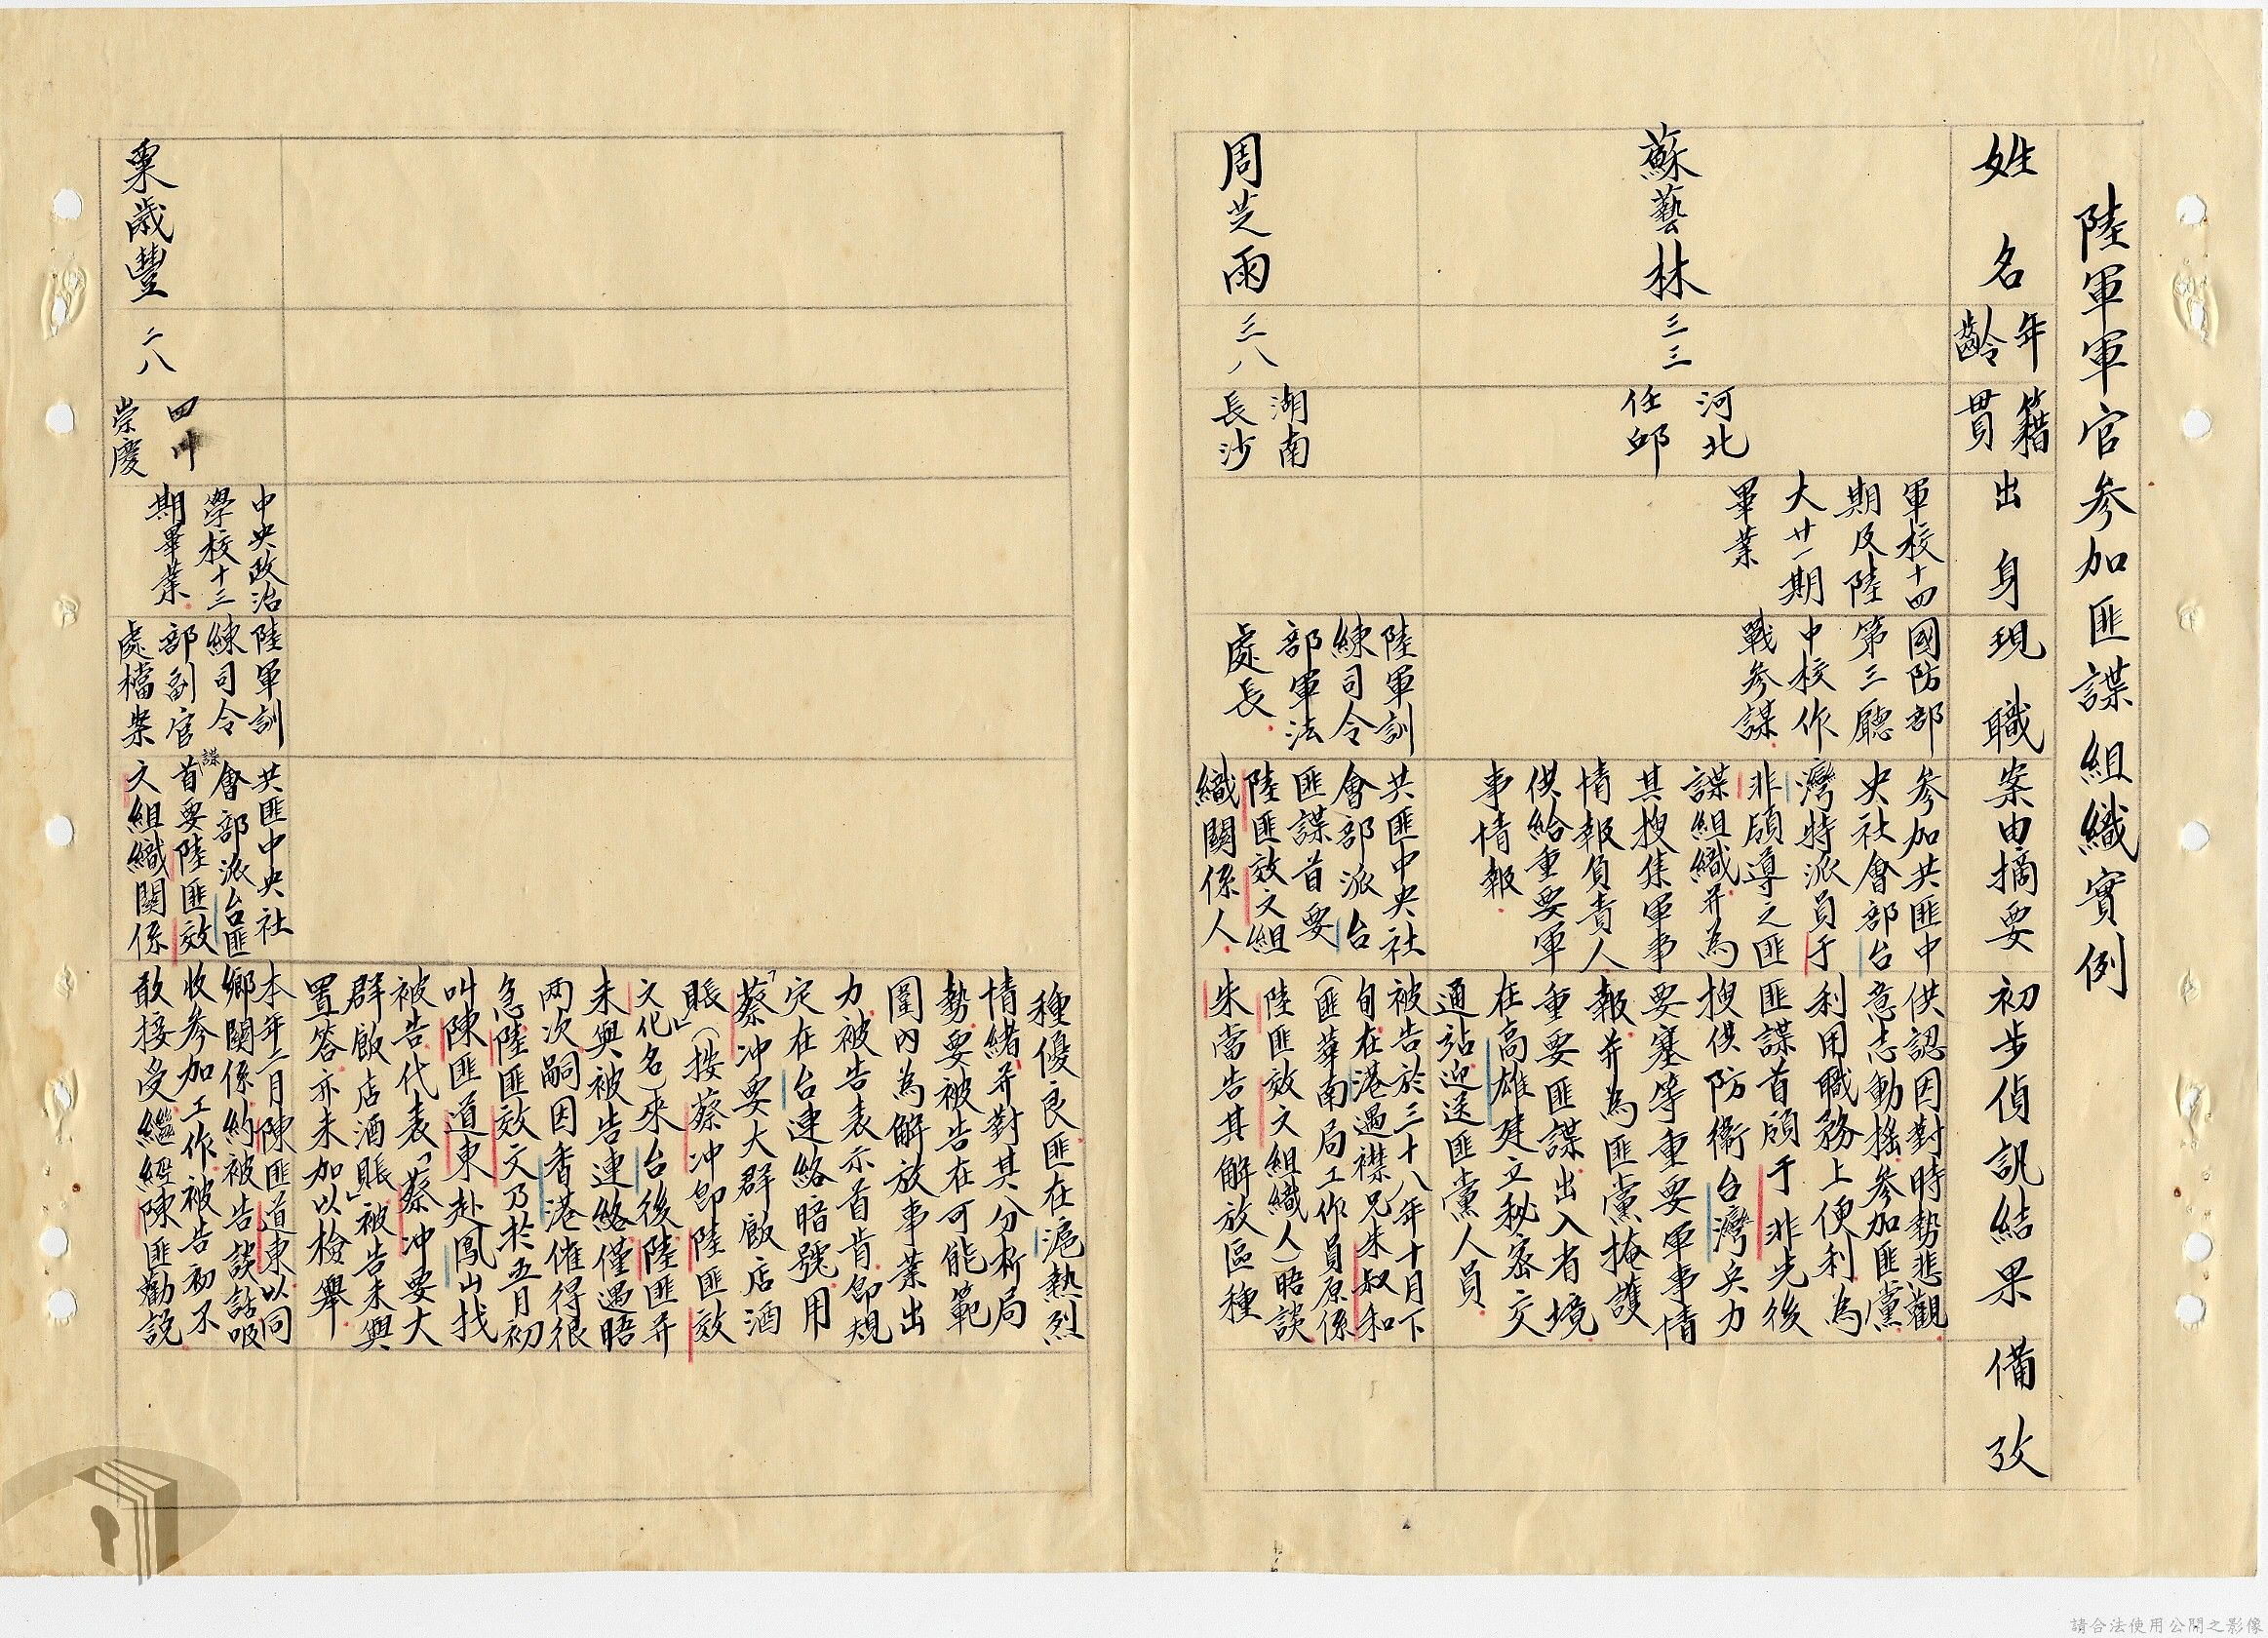 陸軍軍官參加匪諜組織實例
姓名
年齡
籍貫
出身
現職
案由摘要
初步偵訊結果
備攷
蘇藝林
三三
河北
任邱
軍校十四
期及陸
大廿一期
畢業
國防部
第三廳
中校作
戰參謀
參加共匪中
央社會部台
灣特派員于
非領導之匪
諜組織并為
其搜集軍事
情報負責人
供給重要軍
事情報
供認因對時勢悲觀
意志動搖參加匪黨
利用職務上便利為
匪諜首領于非先後
搜供防衛台灣兵力
要塞等重要軍事情
報并為匪黨掩護
重要匪諜出入省境
在高雄建立秘密交
通站迎送匪黨人員
周芝雨
三八
湖南
長沙
陸軍訓
練司令
部軍法
處長
共匪中央社
會部派台
匪諜首要
陸匪效文組
織關係人
被告於三十八年十月下
旬在港遇襟兄朱叔和
(匪華南局工作員原係
陸匪效文組織人)晤談
朱當告其解放區種
種優良匪在滬熱烈
情緒并對其分析局
勢要被告在可能範
圍內為解放事業出
力被告表示首肯即規
定在台連絡暗號用
「蔡冲要大群飯店酒
賬」(按蔡冲即陸匪效
文化名)來台後陸匪并
未與被告連絡僅遇晤
兩次嗣因香港催得很
急陸匪效文乃於五月初
叫陳匪道東赴鳳山找
被告代表「蔡冲要大
群飯店酒賬」被告未與
置答亦未加以檢舉
粟歲豐
二八
四川
崇慶
中央政治
學校十三
期畢業
陸軍訓
練司令
部副官
處檔案
共匪中央社
會部派台匪
諜首要陸匪效
文組織關係
本年二月陳匪道東以同
鄉關係約被告談話吸
收參加工作被告初不
敢接受繼經陳匪勸說
請合法使用公開之影像